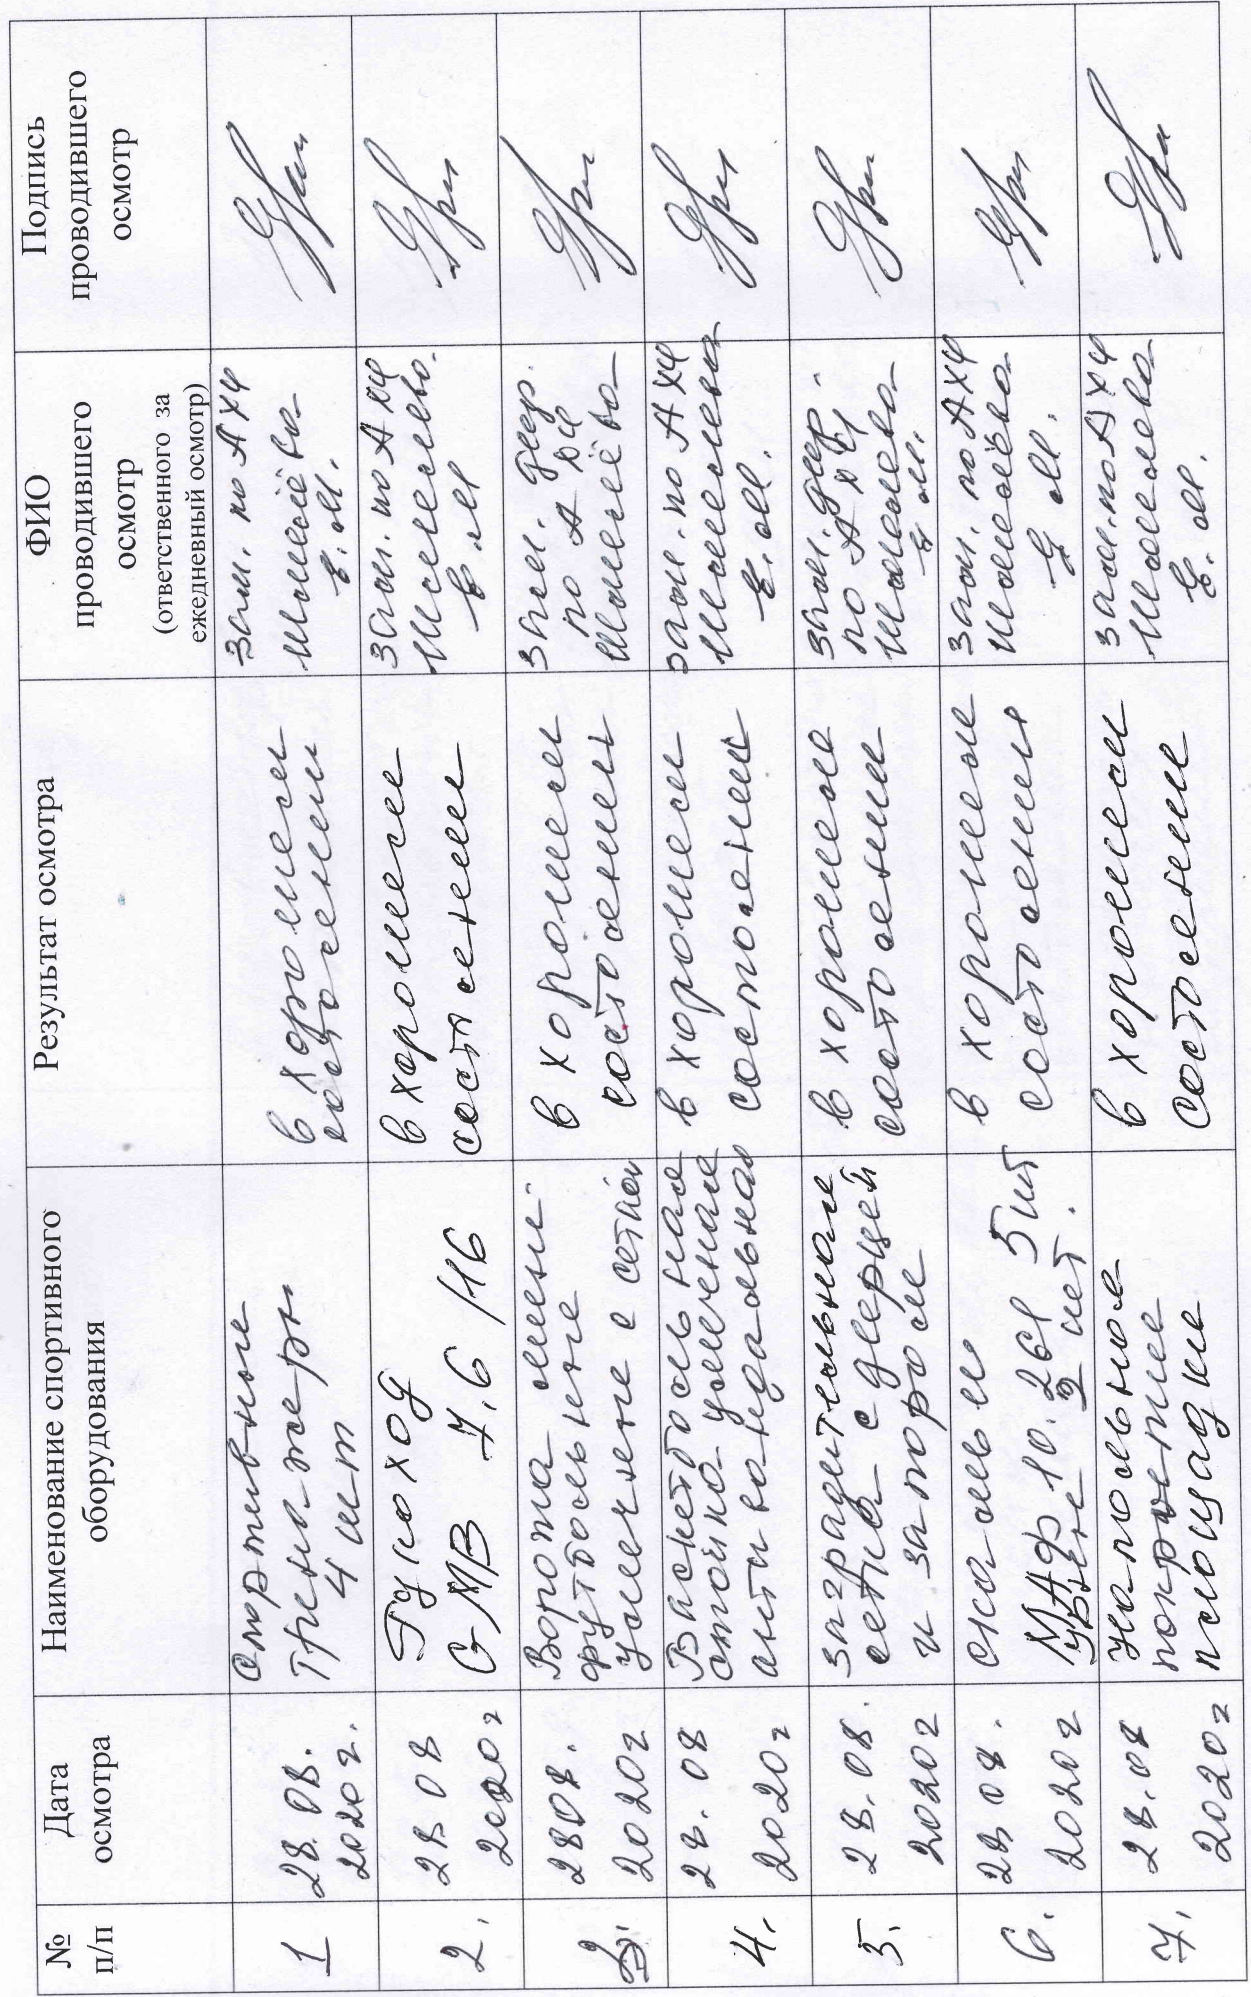 №
п/п
Дата
осмотра
Наименование спортивного
оборудования
Результат осмотра
ФИО
проводившего
осмотр
(ответственного за
ежедневный осмотр)
Подпись
проводившего
осмотр
1
28.08.
2020г.
Спортивные
тренажеры
4 шт
в хорошем
состоянии
зам. по АХЧ
Е.М.
2.
28 08
2020г
Рукоход
СМВ 7.6/16
в хорошем
состоянии
зам. по АХЧ
Е.М
3.
28 08.
2020г
Ворота мини-
футбольные
с сеткой
в хорошем
состоянии
зам. дир.
по АХЧ
4.
28.08
2020г
Баскетбольная
стойка уличная
антивандальная
в хорошем
состоянии
зам. по АХЧ
Е.М.
5.
28.08.
2020г
заградительная
сетка с дверцей
и запором
в хорошем
состоянии
зам. дир.
по АХЧ
Е.М.
6.
28 08.
2020г
скамьи
МАФ 10. 5 шт
в хорошем
состоянии
зам. по АХЧ
Е М.
7.
28.08
2020г
напольное
покрытие
площадки
в хорошем
состоянии
зам. по АХЧ
Е.М.